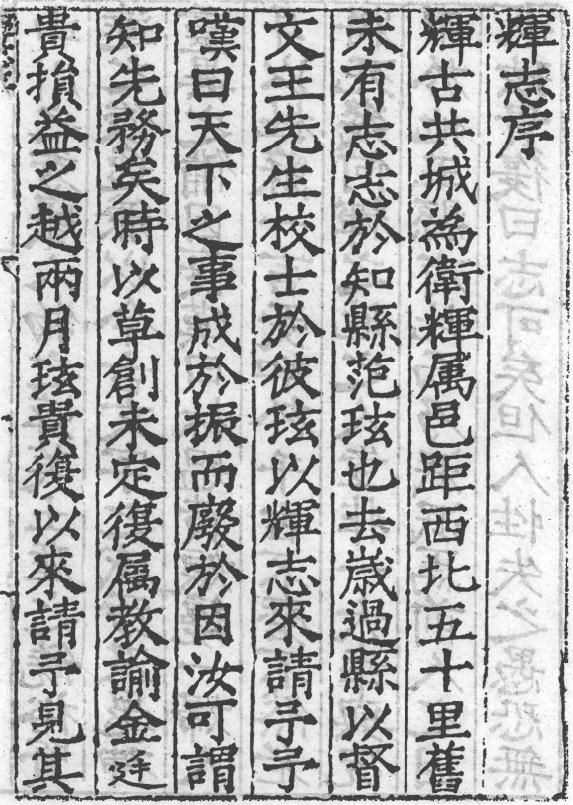 輝志序
輝古共城為衛輝属邑距西北五十里舊
未有志志於知縣范玹也去歲過縣以督
文王先生校士於彼玹以輝志來請予予
嘆曰天下之事成於振而廢於因汝可謂
知先務矣時以草創未定復属教諭金廷
貴損益之越兩月玹貴復以來請予見其